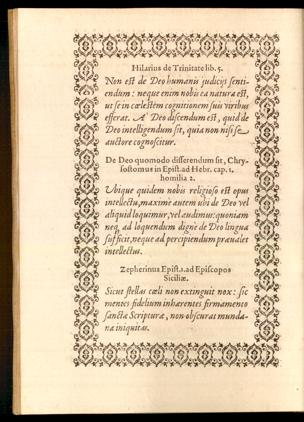 Hilarius de Trinitate lib. 5.
Non est de Deo humanis iudicijs senti-
endum: neque enim nobis ea natura est,
ut se in cœlestem cognitionem suis viribus
efferat. A' Deo discendum est, quid de
Deo intelligendum sit, quia non nisi se
auctore cognoscitur.
De Deo quomodo disserendum sit, Chry-
sostomus in Epist. ad Hebr. cap. 1.
homilia 2.
Ubique quidem nobis religioso est opus
intellectu, maximè autem ubi de Deo vel
aliquid loquimur, vel audimus: quoniam
neq, ad loquendum digne de Deo lingua
sufficit, neque ad percipiendum præualet
intellectus.
Zepherinus Epist. 1. ad Episcopos
Siciliæ.
Sicut stellas cœli non extinguit nox: sic
mentes fidelium inhærentes firmamento
sanctæ Scripturæ, non obscurat munda-
na iniquitas.